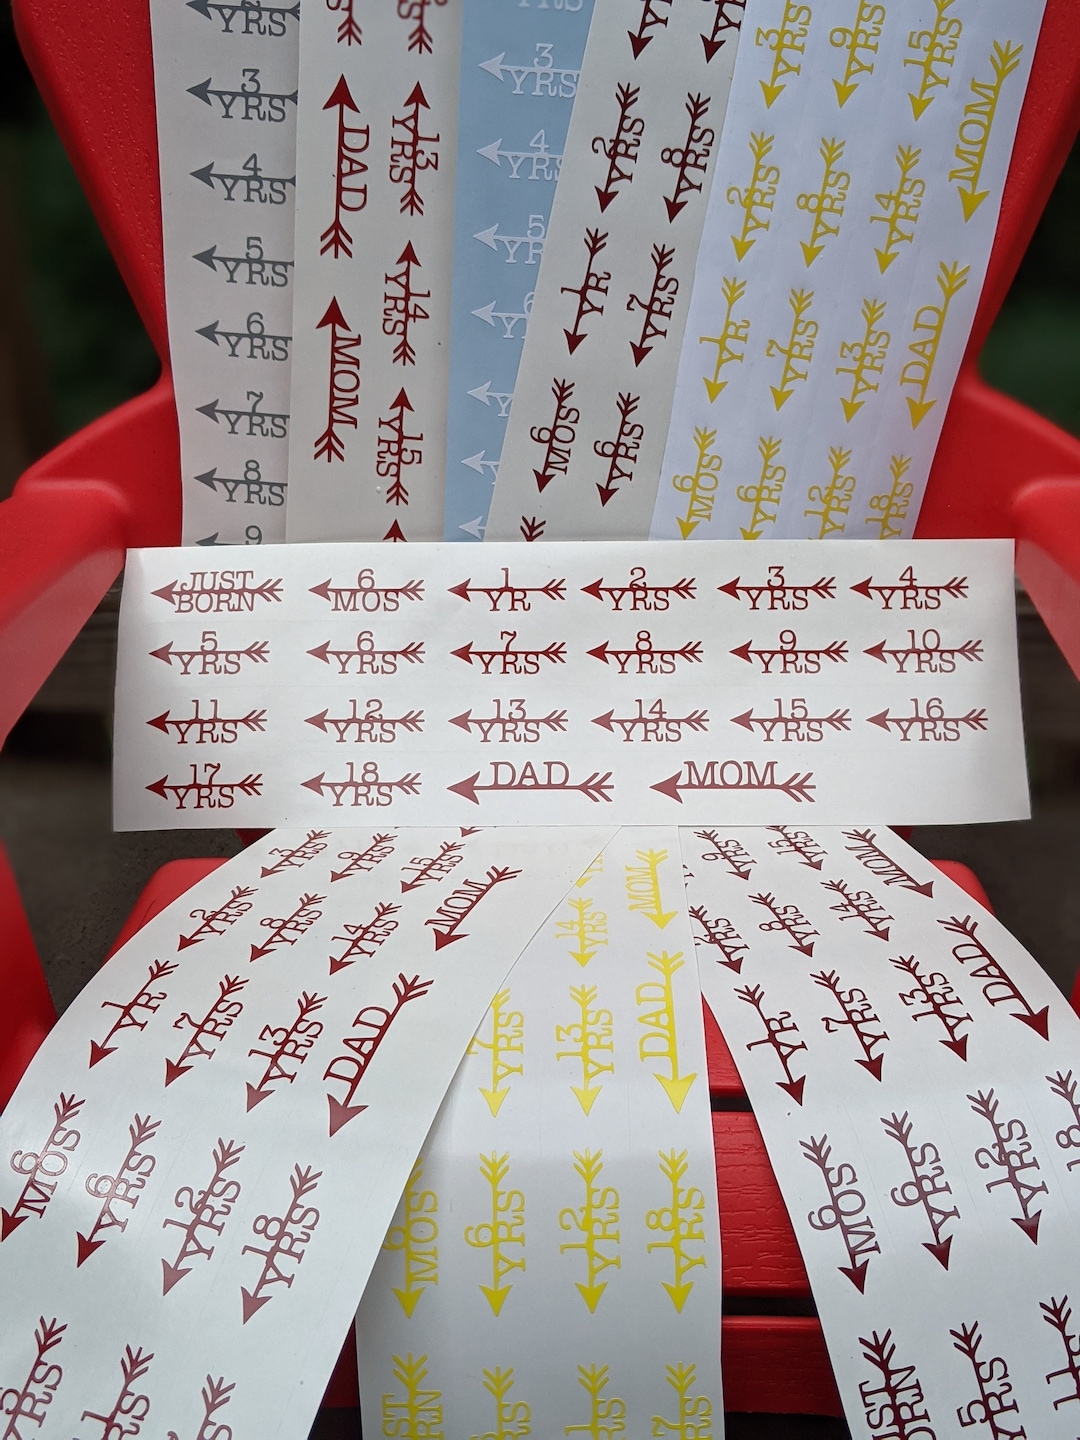 YRS
3
YRS
4
YRS
5
YRS
6
YRS
7
YRS
8
YRS
9
DAD
13
YRS
14
YRS
MOM
15
YRS
YRS
3
YRS
4
YRS
5
YR
6
Y
2
YRS
8
YRS
1
YR
7
YRS
6
MOS
6
YRS
3
YRS
9
YRS
15
YRS
MOM
2
YRS
8
YRS
14
YRS
1
YR
7
YRS
13
YRS
DAD
6
MOS
6
YRS
12
YRS
18
YRS
JUST
BORN
6
MOS
1
YR
2
YRS
3
YRS
4
YRS
5
YRS
6
YRS
7
YRS
8
YRS
9
YRS
10
YRS
11
YRS
12
YRS
13
YRS
14
YRS
15
YRS
16
YRS
17
YRS
18
YRS
DAD
MOM
3
YRS
9
YRS
15
YRS
MOM
2
YRS
8
YRS
14
YRS
1
YR
7
YRS
13
YRS
DAD
6
MOS
6
YRS
12
YRS
18
YRS
14
YRS
MOM
7
YRS
13
YRS
DAD
6
MOS
6
YRS
12
YRS
18
YRS
9
YRS
15
YRS
MOM
YRS
8
YRS
14
YRS
DAD
1
YR
7
YRS
13
YRS
6
MOS
6
YRS
12
YRS
18
5
YRS
11